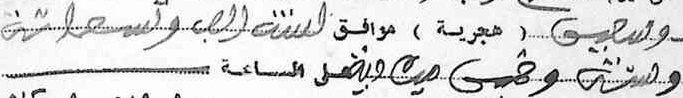 وسبعين ( هجرية ) موافق لسنة الف وتسعمائة
وستة وخمسين ميلادية على الساعة